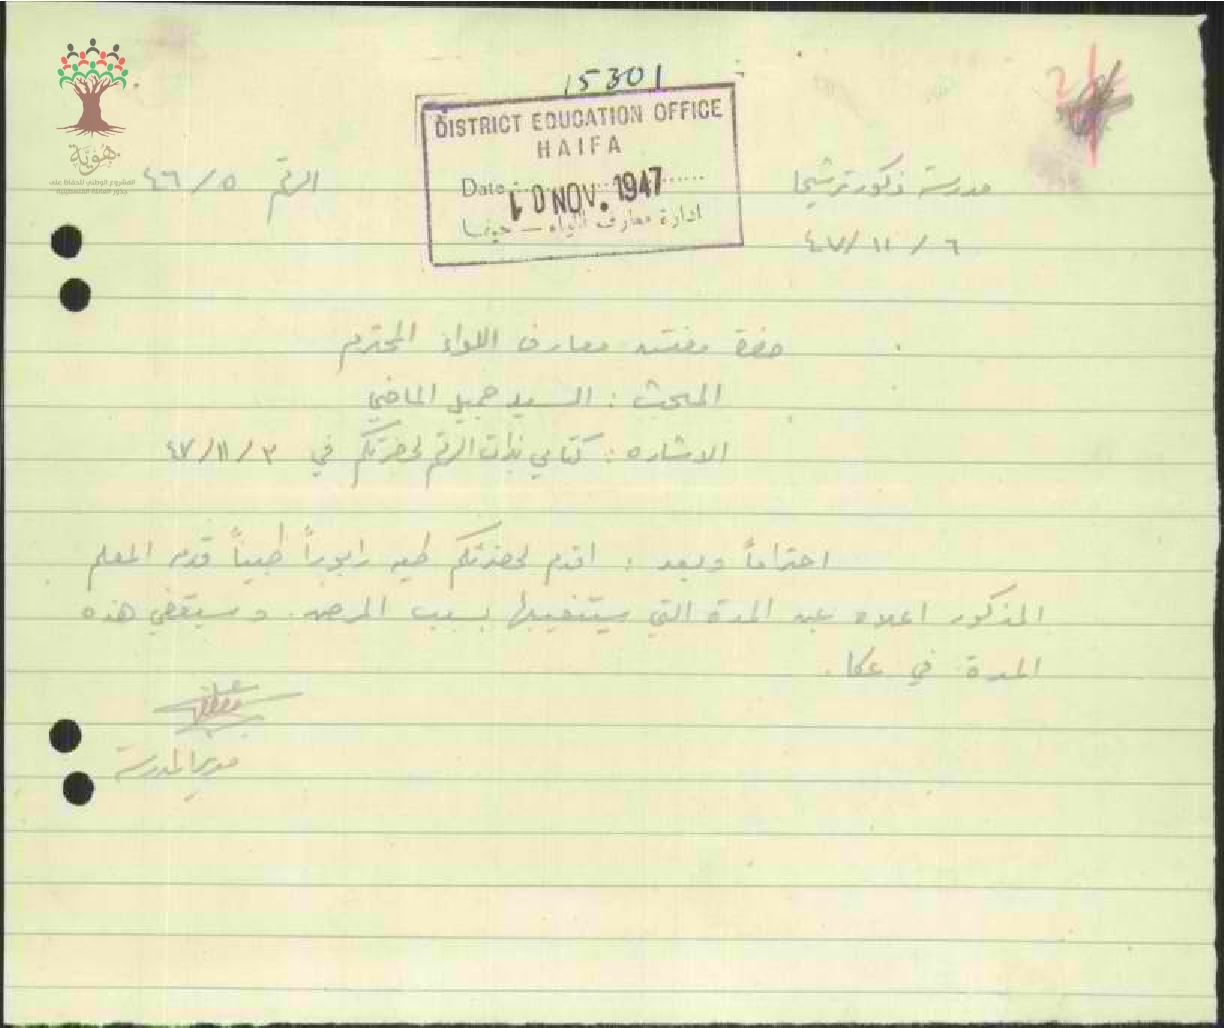 15301
DISTRICT EDUCATION OFFICE
HAIFA
Date 10 NOV. 1947
ادارة معارف اللواء – حيفا
هوية
المشروع الوطني للحفاظ على
جذور العائلة الفلسطينية
مدرسة ذكور ترشيحا
الرقم ٤٦/٥
٤٧/١١/٦
حضرة مفتش معارف اللواء المحترم
المبحث : السيد جميل الماضي
الاشاره : كتابي بذات الرقم لحضرتكم في ٤٧/١١/٣
احتراماً وبعد : اقدم لحضرتكم طيه رابوراً طبياً قدمه المعلم
المذكور اعلاه عن المدة التي سيتغيبها بسبب المرض. وسيقضي هذه
المدة في عكا.
مدير المدرسة